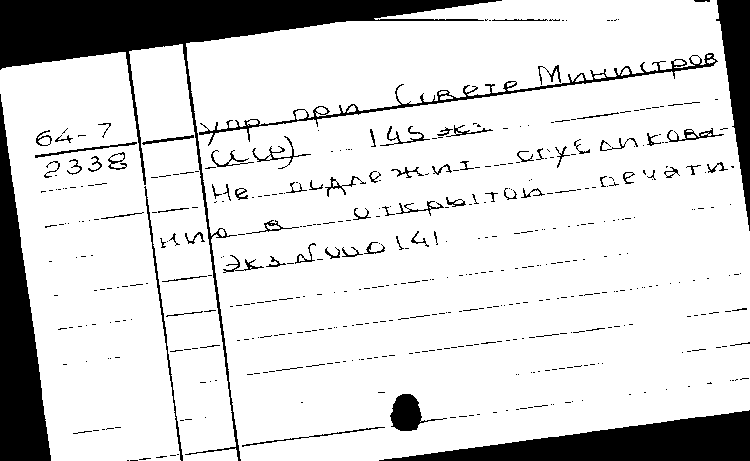 64-7
2338
упр при Совете Министров
СССР) 145 экз
Не подлежит опубликова
нию в открытой печати.
Экз № 000141